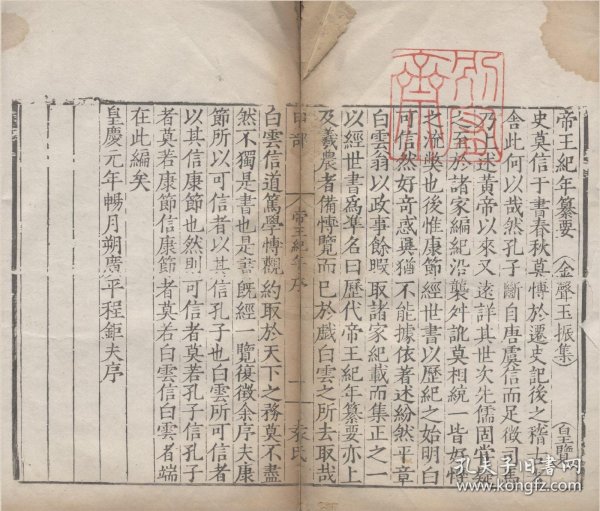 帝王紀年纂要 金聲玉振集 皇覽
史莫信于書春秋莫博於遷史記後之稽古者
舍此何以哉然孔子斷自唐虞信而足徵司馬
乃述黃帝以來又遠詳其世次先儒固嘗疑
之至於諸家編紀沿襲舛訛莫相統一皆好
之流獘也後惟康節經世書以歷紀之始明白
可信然好奇惑異猶不能據依著述紛然平章
白雲翁以政事餘暇取諸家紀載而集正之一
以經世書爲準名曰歷代帝王紀年纂要亦上
及羲農者備博覽而已於戲白雲之所去取哉
帝王紀年序
一
袁氏
白雲信道篤學博觀約取於天下之務莫不盡
然不獨是書也是書既經一覽復徵余序夫康
節所以可信者以其信孔子也白雲所可信者
以其信康節也然則可信者莫若孔子信孔子
者莫若康節信康節者莫若白雲信白雲者端
在此編矣
皇慶元年暢月朔廣平程鉅夫序
孔夫子旧书网